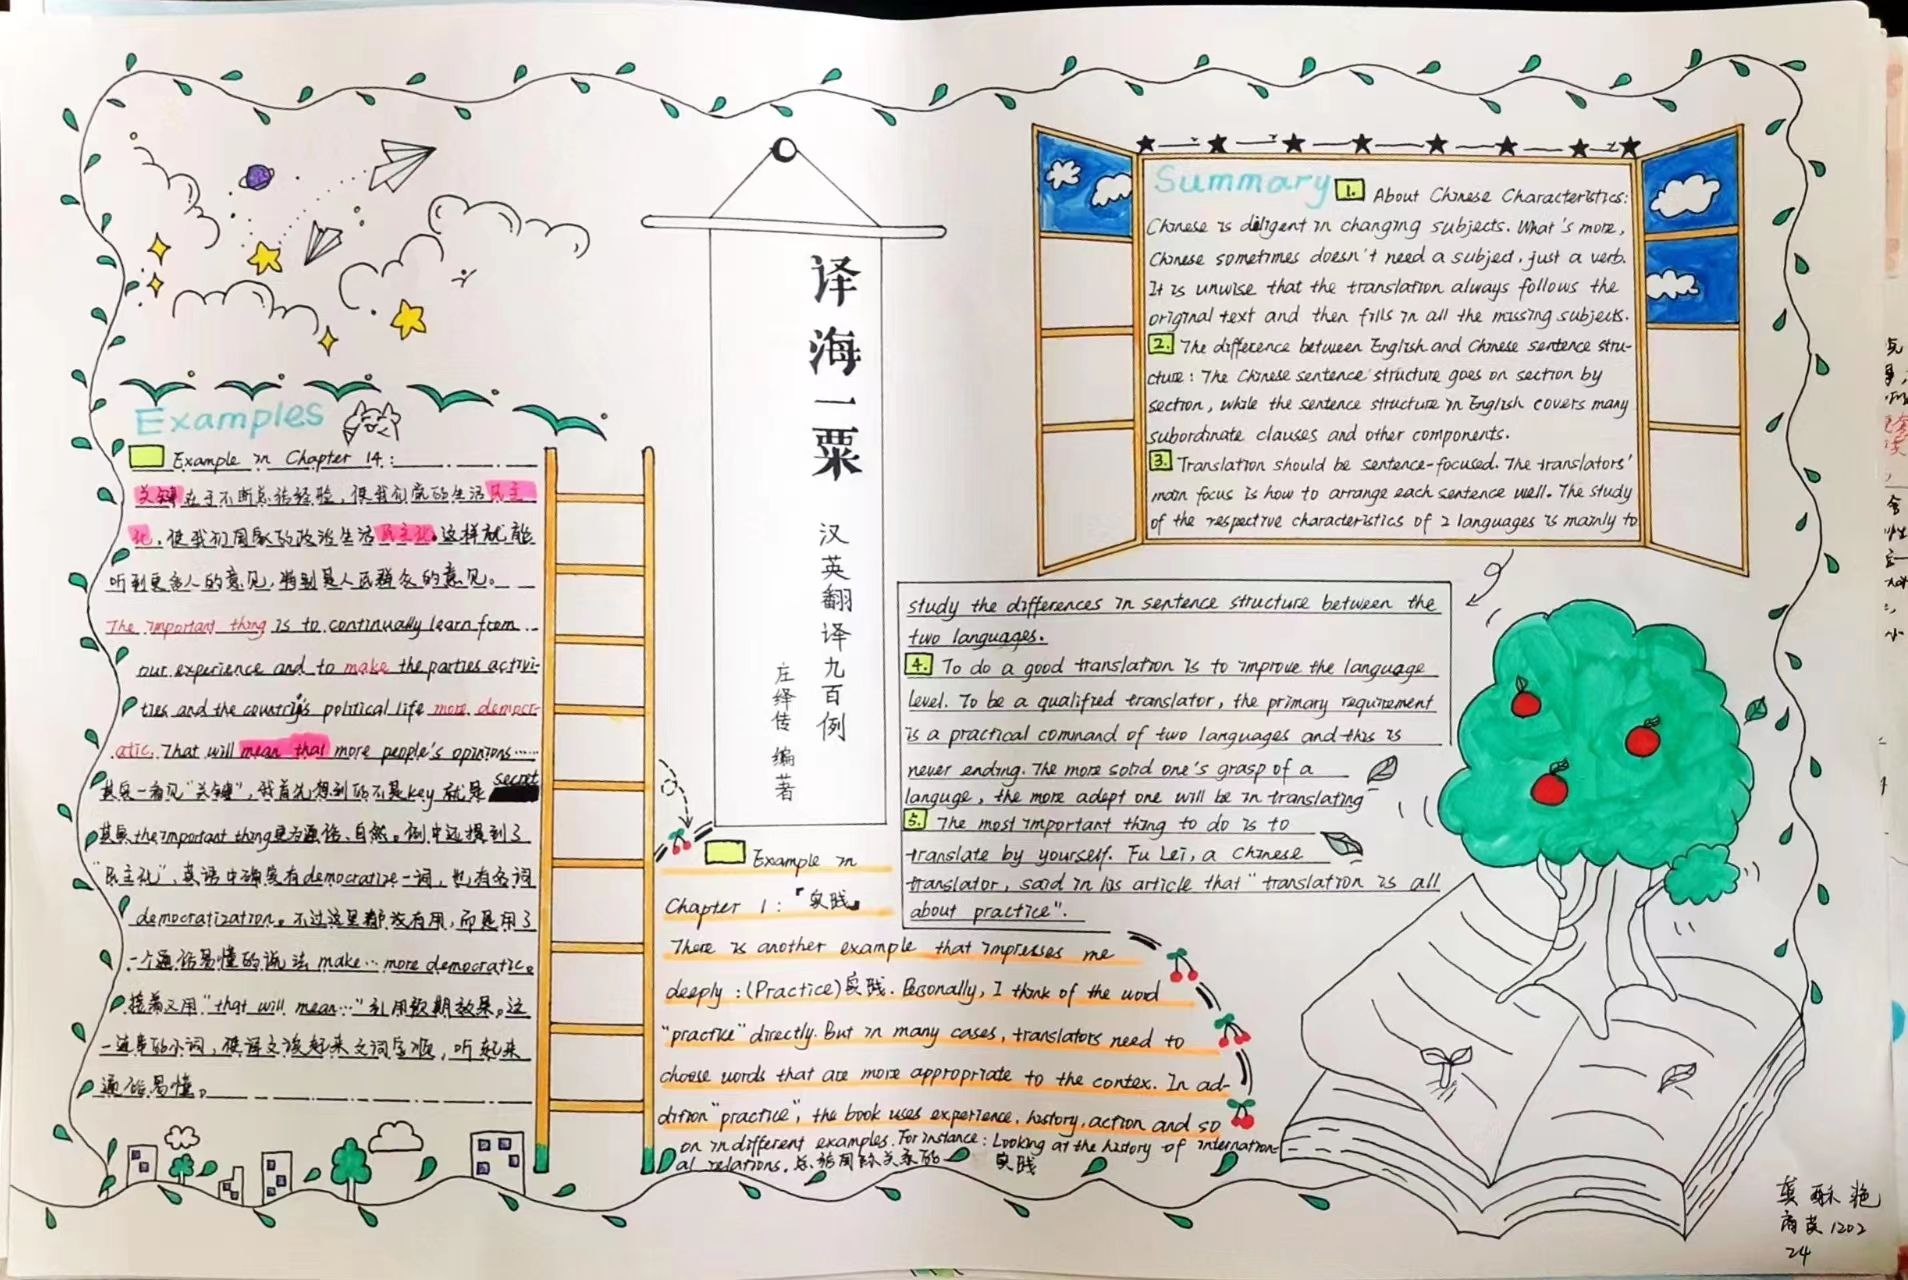 Examples
Example in Chapter 14:
关键在于不断总结经验，使我们党的生活民主
化，使我们国家的政治生活民主化。这样就能
听到更多人的意见，特别是人民群众的意见。
The important thing is to continually learn from
our experience and to make the parties activi-
ties and the country's political life more democr-
atic. That will mean that more people's opinions……
其实一看见"关键"，我首先想到的不是key就是 secret
其实the important thing更为通俗、自然。例中还提到了
"民主化"，英语中确实有democratize一词，也有名词
democratization。不过这里都没有用，而是用了
一个通俗易懂的说法 make… more democratic。
接着又用"that will mean…"引用预期效果。这
一连串的小词，使译文读起来文词字顺，听起来
通俗易懂。
译海一粟
汉英翻译九百例
庄绎传 编著
Example in
Chapter 1:「实践」
There is another example that impresses me
deeply:(Practice)实践. Personally, I think of the word
"practice" directly. But in many cases, translators need to
choose words that are more appropriate to the contex. In ad-
dition "practice", the book uses experience, history, action and so
on in different examples. For instance: Looking at the history of internation-
al relations, 总结国际关系的 实践
Summary 1. About Chinese Characteristics:
Chinese is diligent in changing subjects. What's more,
Chinese sometimes doesn't need a subject, just a verb.
It is unwise that the translation always follows the
original text and then fills in all the missing subjects.
2. The difference between English and Chinese sentence stru-
cture: The Chinese sentence structure goes on section by
section, while the sentence structure in English covers many
subordinate clauses and other components.
3. Translation should be sentence-focused. The translators'
main focus is how to arrange each sentence well. The study
of the respective characteristics of 2 languages is mainly to
study the differences in sentence structure between the
two languages.
4. To do a good translation is to improve the language
level. To be a qualified translator, the primary requirement
is a practical command of two languages and this is
never ending. The more solid one's grasp of a
languge, the more adept one will be in translating
5. The most important thing to do is to
translate by yourself. Fu Lei, a Chinese
translator, said in his article that "translation is all
about practice".
龚酥艳
商英1202
24